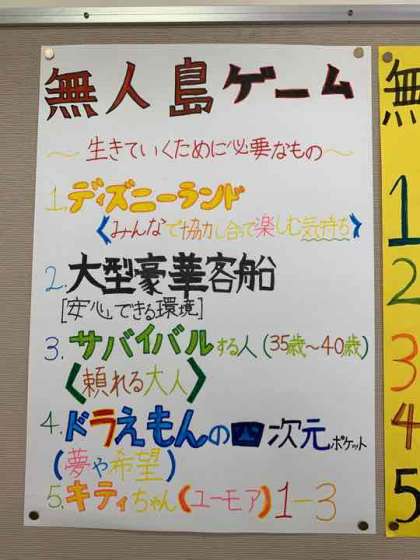 無人島ゲーム
～生きていくために必要なもの～
1.ディズニーランド
〈みんなで協力し合って楽しむ気持ち〉
2.大型豪華客船
[安心できる環境]
3.サバイバルする人(35歳～40歳)
〈頼れる大人〉
4.ドラえもんの四次元ポケット
(夢や希望)
5.キティちゃん(ユーモア)1-3
無
1
2
3
4
5